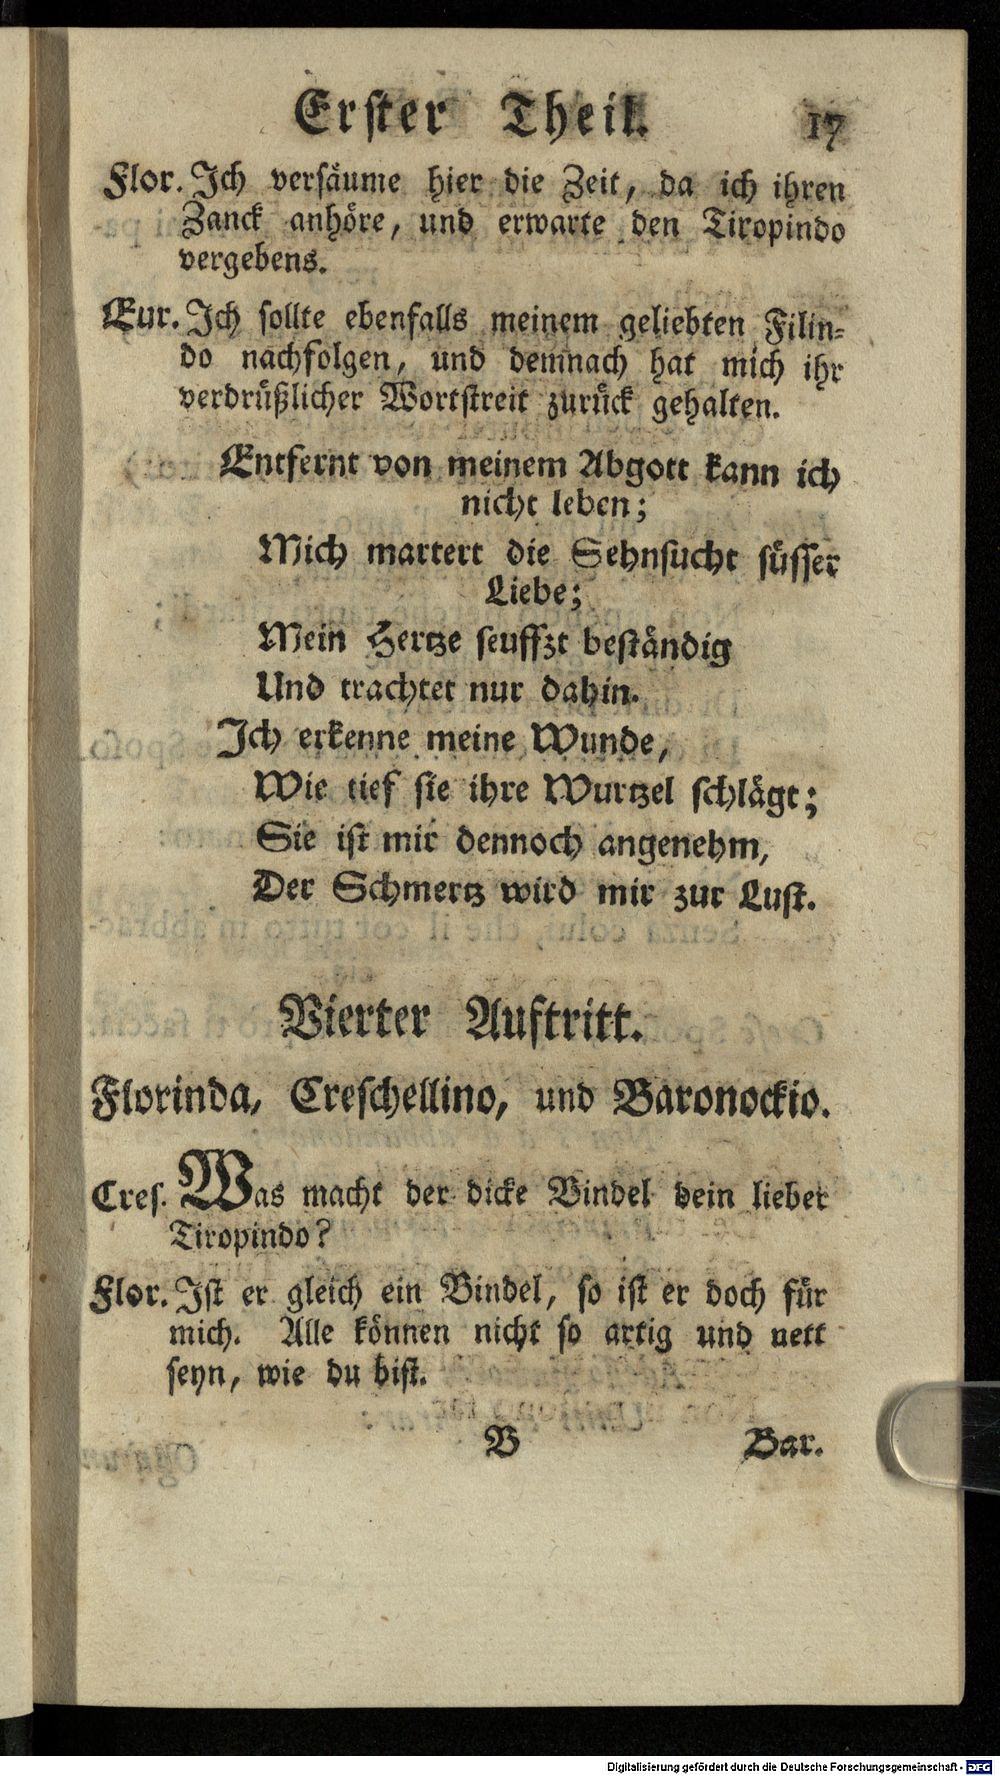 Erster Theil. 17
Flor. Ich versäume hier die Zeit, da ich ihren
Zanck anhöre, und erwarte den Tiropindo
vergebens.
Eur. Ich sollte ebenfalls meinem geliebten Filin-
do nachfolgen, und demnach hat mich ihr
verdrüßlicher Wortstreit zurück gehalten.
Entfernt von meinem Abgott kann ich
nicht leben;
Mich martert die Sehnsucht süsser
Liebe;
Mein Hertze seuffzt beständig
Und trachtet nur dahin.
Ich erkenne meine Wunde,
Wie tief sie ihre Wurtzel schlägt;
Sie ist mir dennoch angenehm,
Der Schmertz wird mir zur Lust.
Vierter Auftritt.
Florinda, Creschellino, und Baronockio.
Cres. Was macht der dicke Bindel dein lieber
Tiropindo?
Flor. Ist er gleich ein Bindel, so ist er doch für
mich. Alle können nicht so artig und nett
seyn, wie du bist.
B Bar.
Digitalisierung gefördert durch die Deutsche Forschungsgemeinschaft - DFG